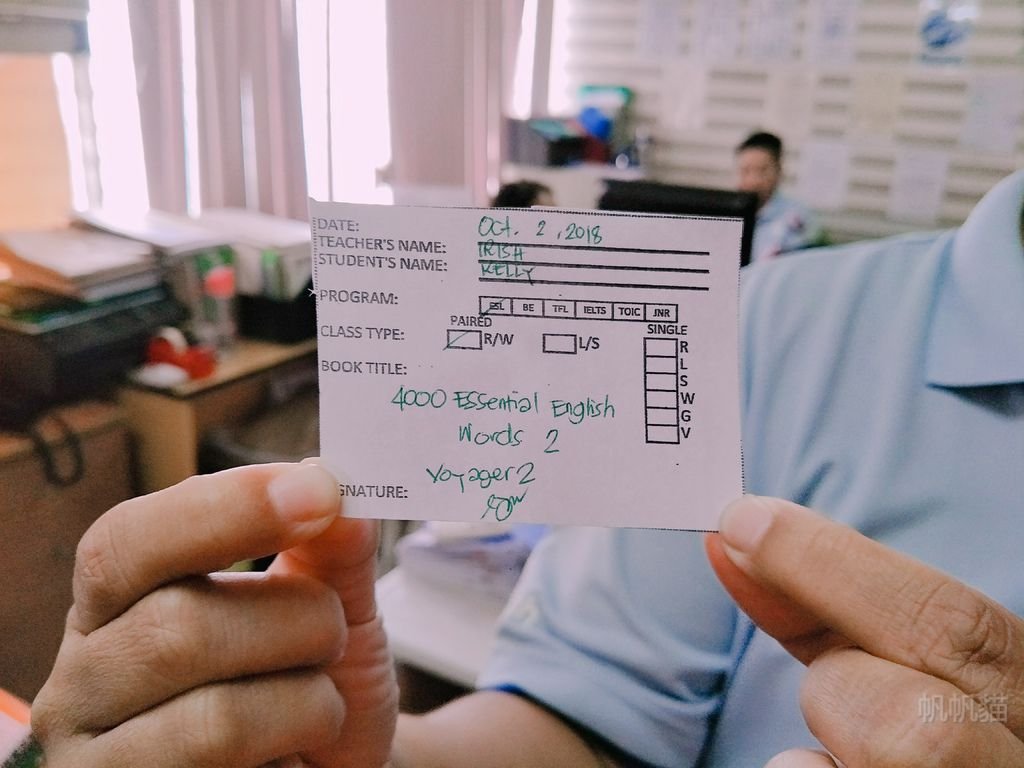 DATE: Oct. 2, 2018
TEACHER'S NAME: IRISH
STUDENT'S NAME: KELLY
PROGRAM: ESL BE TFL IELTS TOIC JNR
CLASS TYPE: PAIRED R/W L/S SINGLE
R
L
S
W
G
V
BOOK TITLE:
4000 Essential English
Words 2
Voyager 2
GNATURE:
帆帆貓